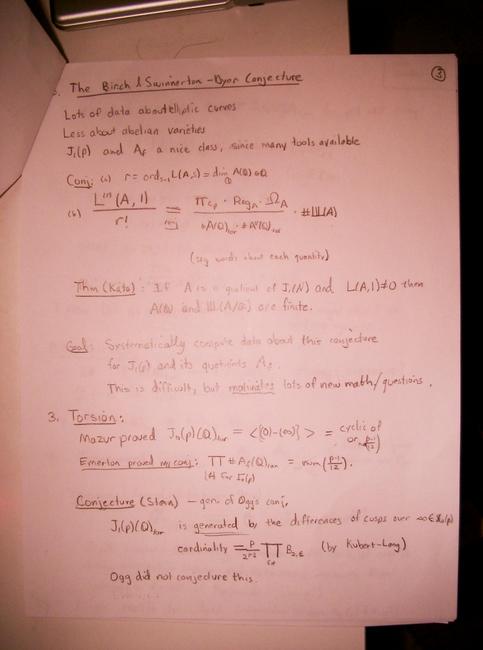 ③
. The Birch & Swinnerton-Dyer Conjecture
Lots of data about elliptic curves
Less about abelian varieties
J₁(p) and A_f a nice class, since many tools available
Conj: (a) r = ord_{s=1} L(A,s) = dim_ℚ A(ℚ)⊗ℚ
(b) L^{(r)}(A,1) / r! = ∏c_p · Reg_A · Ω_A / #A(ℚ)_{tor} · #A^∨(ℚ)_{tor} · #Ш(A)
conj
(say words about each quantity)
Thm (Kato): If A is a quotient of J₁(N) and L(A,1)≠0 then
A(ℚ) and Ш(A/ℚ) are finite.
Goal: Systematically compute data about this conjecture
for J₁(p) and its quotients A_f.
This is difficult, but motivates lots of new math/questions.
3. Torsion:
Mazur proved J₀(p)(ℚ)_{tor} = <(0)-(∞)> = cyclic of
Emerton proved my conj: ∏ #A_f(ℚ)_{tor} = num(p-1/12).
for J₀(p)
Conjecture (Stein) - gen. of Oggs conj.
J₁(p)(ℚ)_{tor} is generated by the differences of cusps over ∞∈X₀(p)
cardinality = p/2^{p-3} ∏ B_{2,ε} (by Kubert-Lang)
Ogg did not conjecture this.